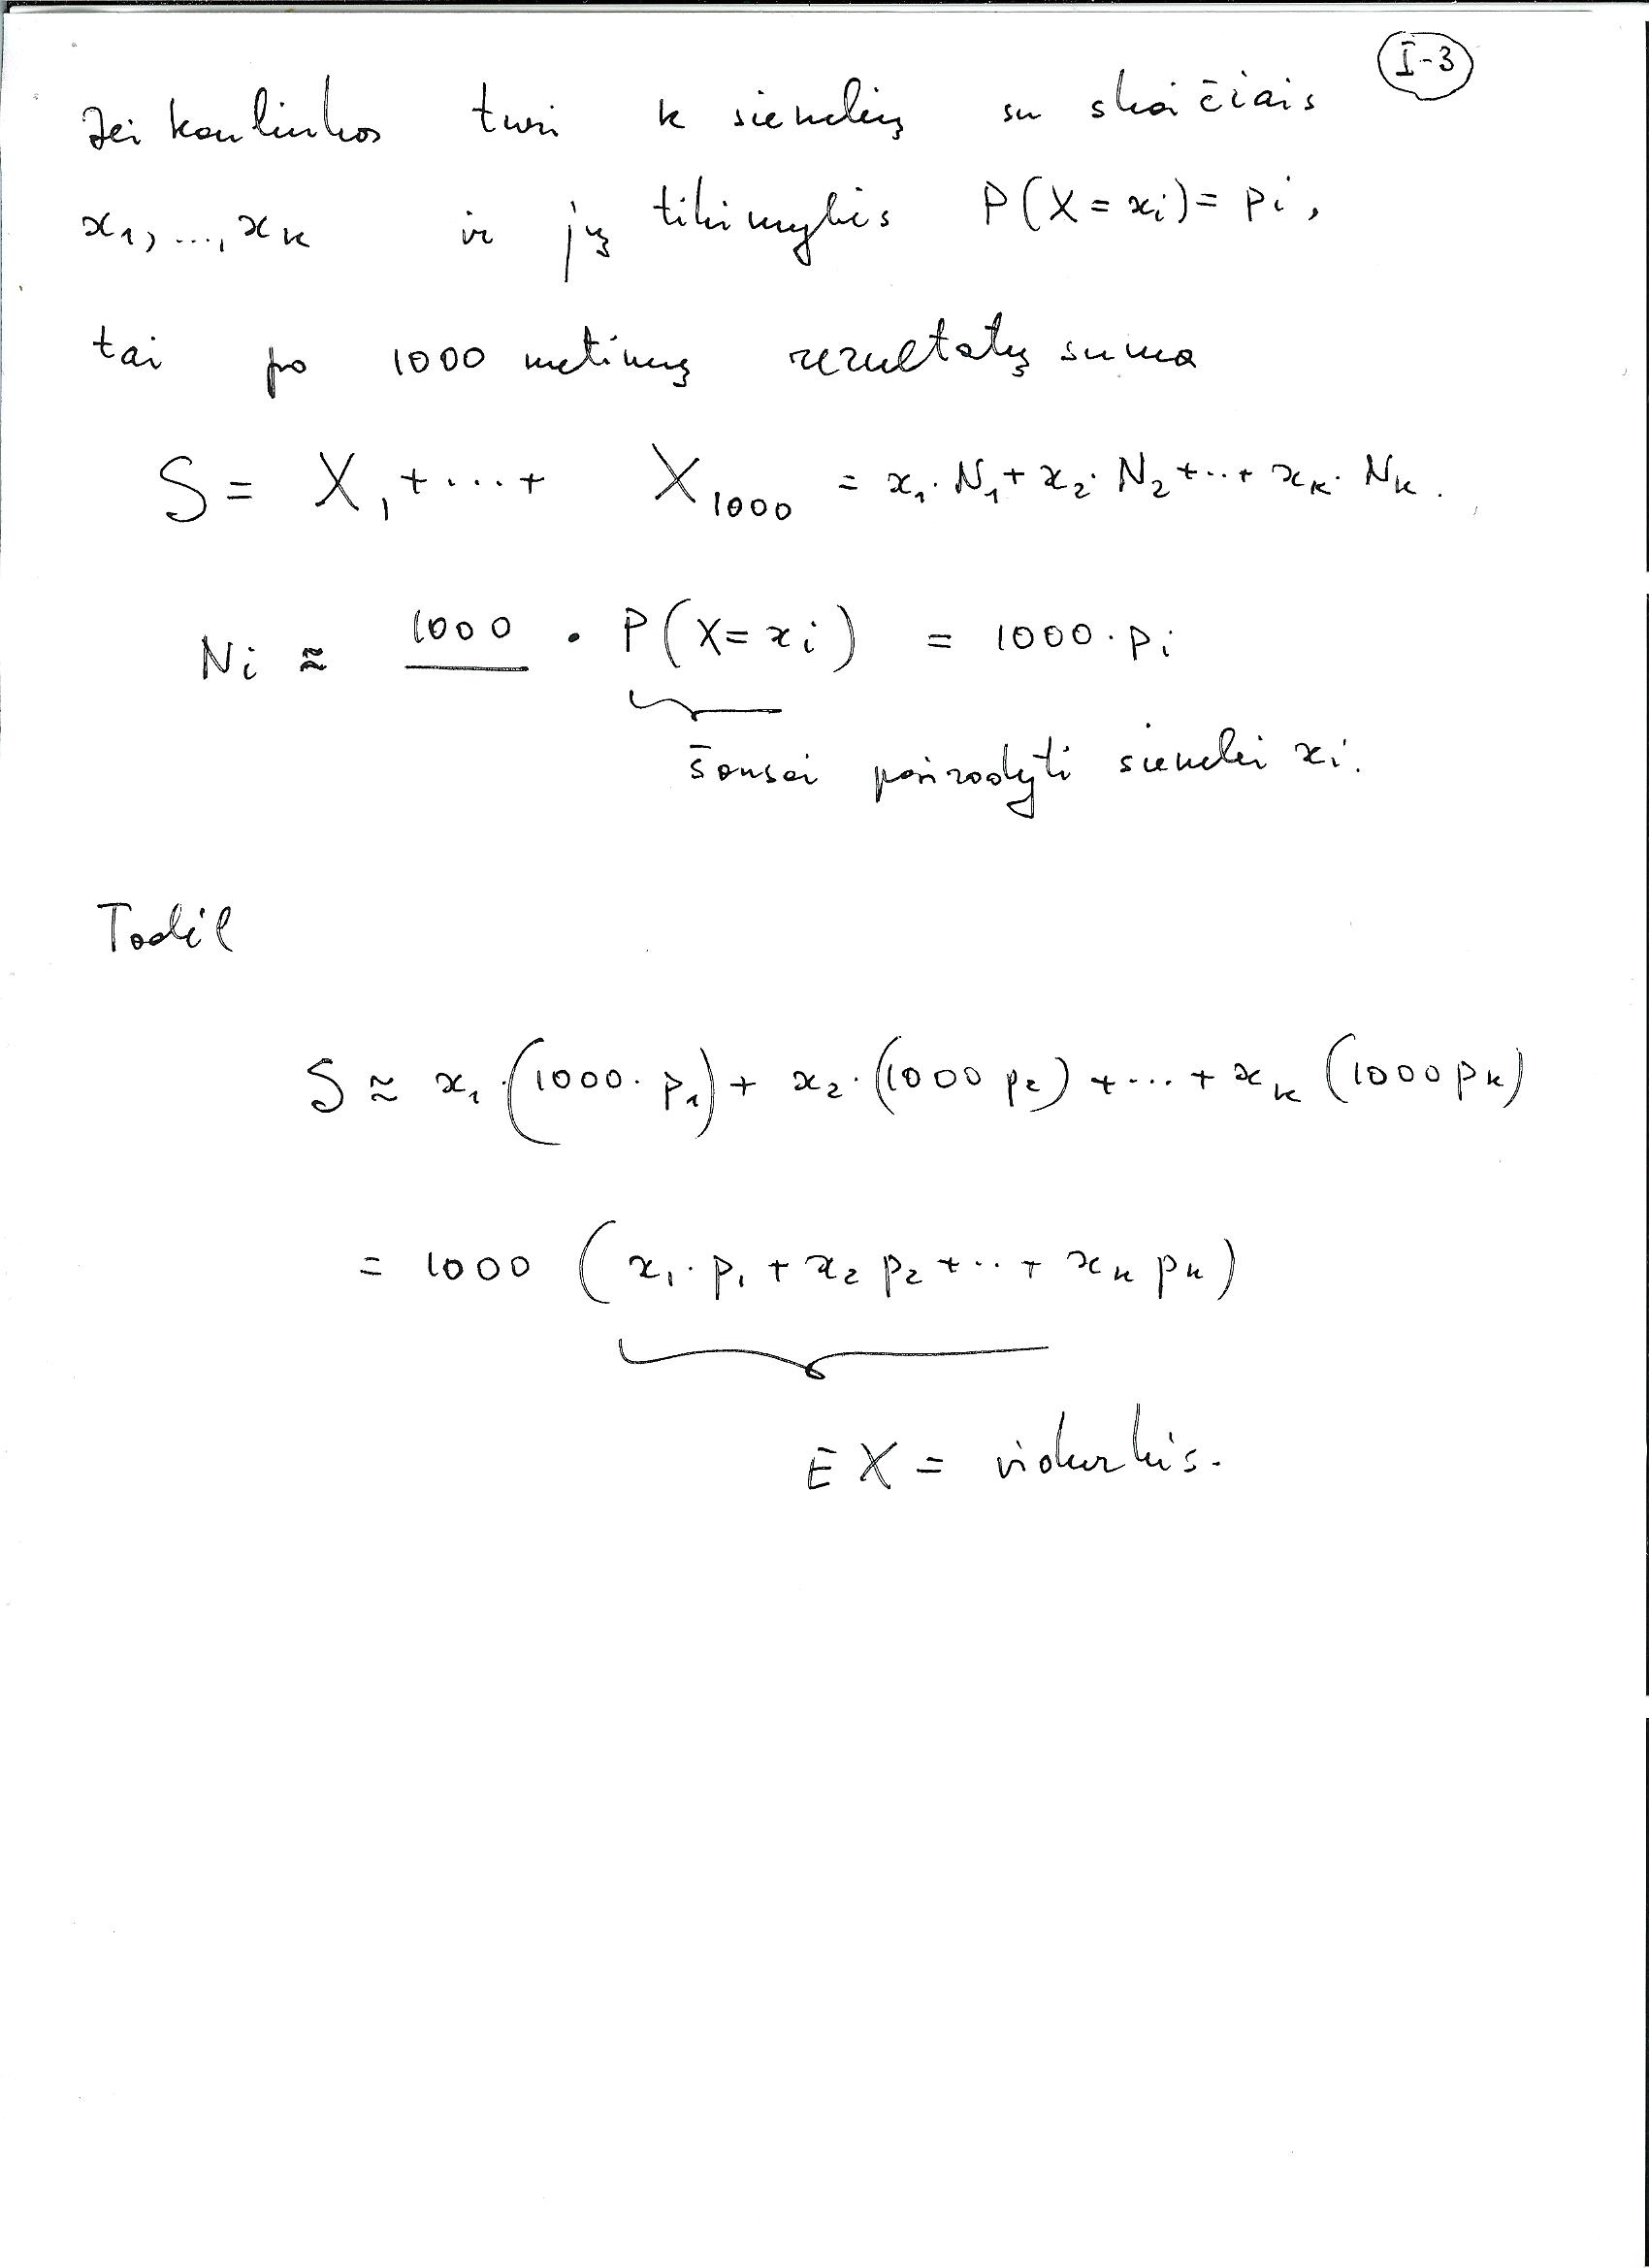 I-3
Jei kauliukas turi k sienelių su skaičiais
x₁, ..., xₖ ir jų tikimybės P(X = xᵢ) = pᵢ,
tai po 1000 metimų rezultatų suma
S = X₁ + ... + X₁₀₀₀ = x₁·N₁ + x₂·N₂ + ... + xₖ·Nₖ.
Nᵢ ≈ 1000 · P(X = xᵢ) = 1000·pᵢ
šansai pasirodyti sienelei xᵢ.
Todėl
S ≈ x₁·(1000·p₁) + x₂·(1000 p₂) + ... + xₖ (1000 pₖ)
= 1000 (x₁·p₁ + x₂ p₂ + ... + xₖ pₖ)
EX = vidurkis.